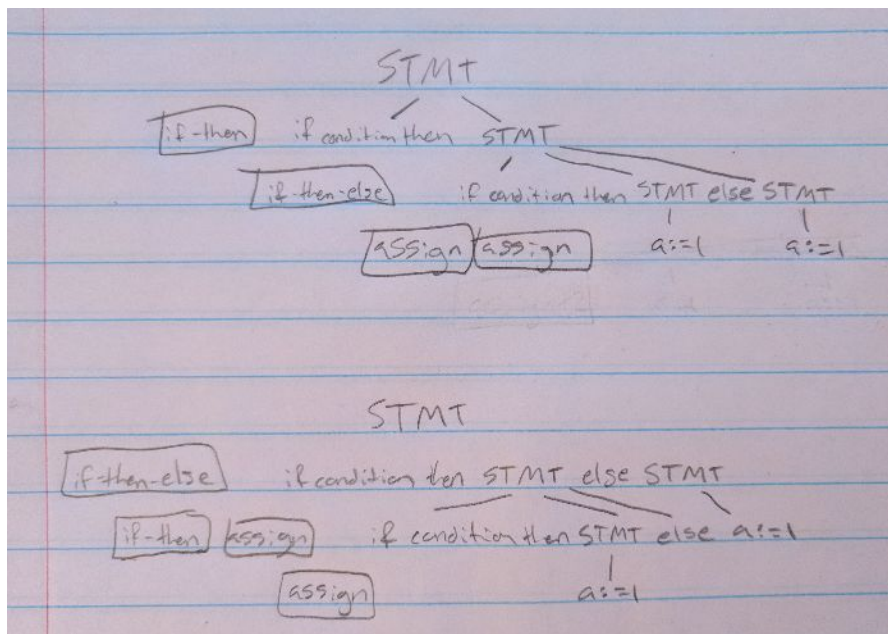 STMT
if-then if condition then STMT
if-then-else if condition then STMT else STMT
assign assign a:=1 a:=1
STMT
if-then-else if condition then STMT else STMT
if-then assign if condition then STMT else a:=1
assign a:=1